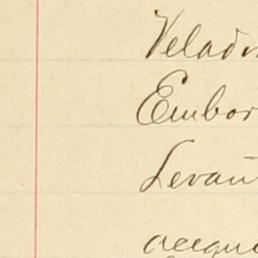 Velado
Embor
Levan
acequ